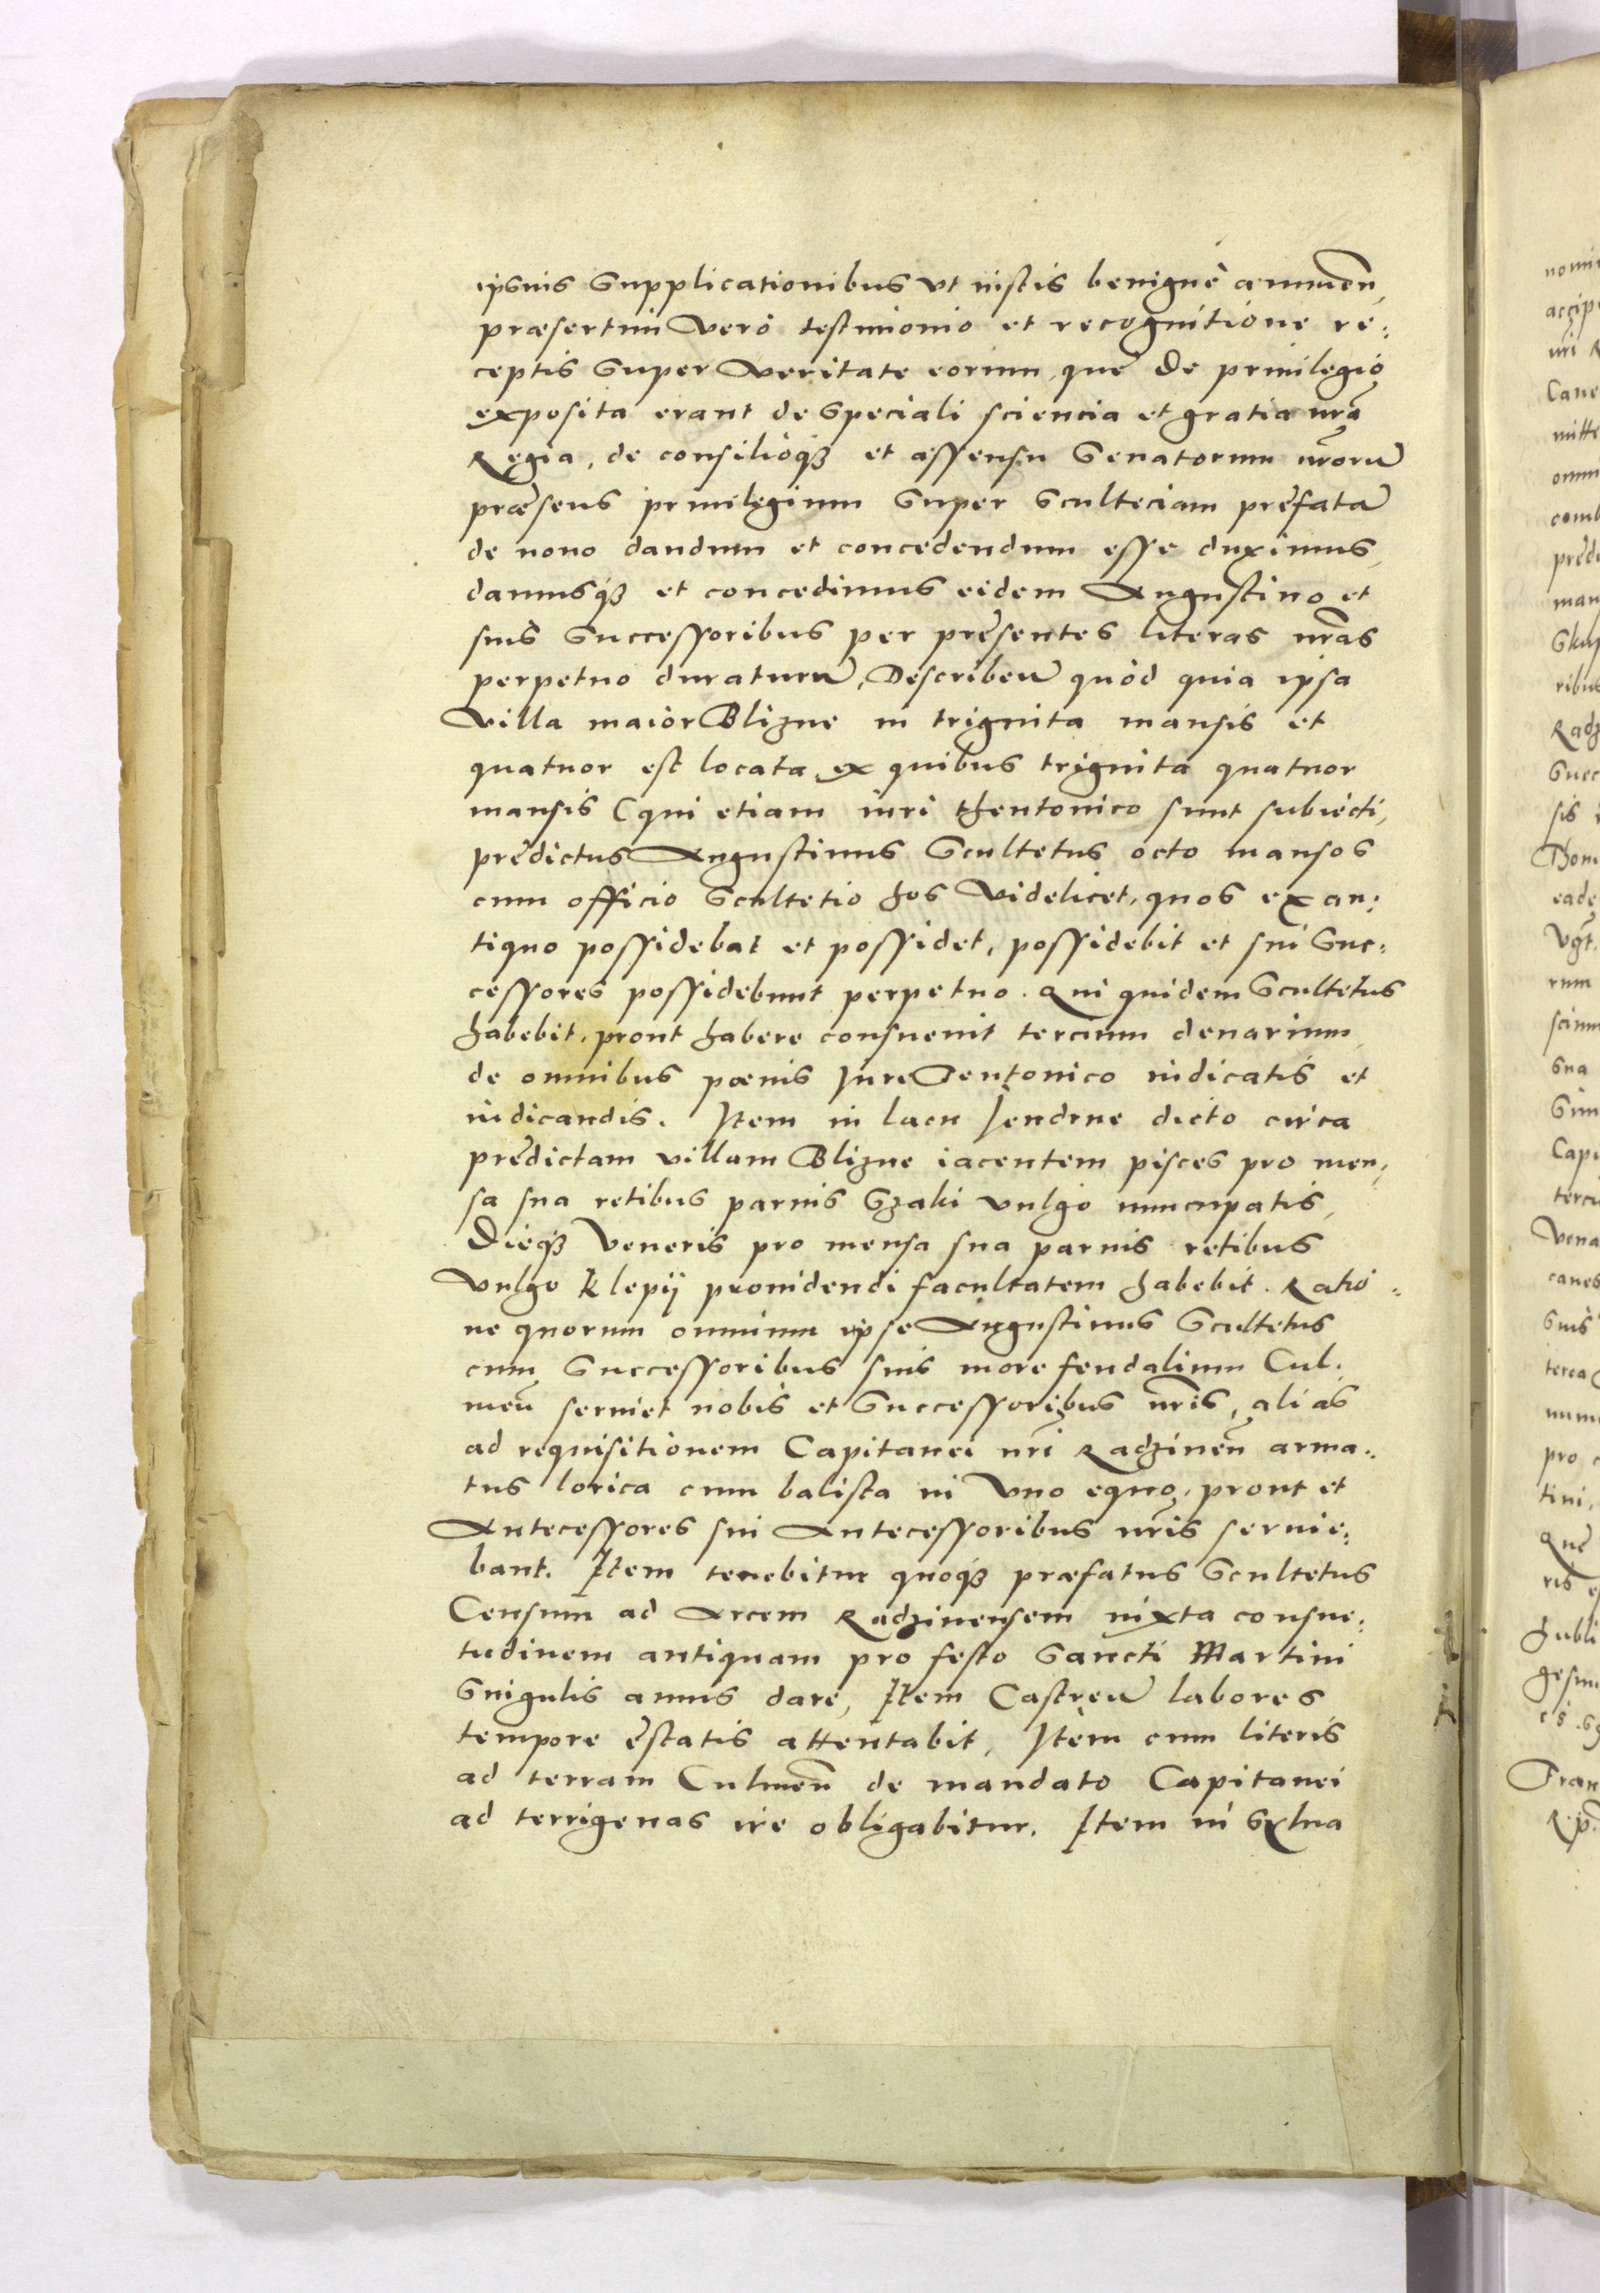 ipsius supplicationibus vt iustis benignè annuen̄,
præsertim verò testimonio et recognitione re:
ceptis super veritate eorum, quę de priuilegio
exposita erant de speciali sciencia et gratia nr̄a
Regia, de consilioq́ꝫ et assensu Senatorum nr̄orū
præsens priuilegium super sculteciam pręfatā
de nouo dandum et concedendum esse duximus,
damusq́ꝫ et concedimus eidem Augustino et
suis successoribus per pręsentes literas nr̄as
perpetuo duraturū, Describen̄ quòd quia ipsa
villa maior Blizne in triginta mansis et
quatuor est locata, ex quibus triginta quatuor
mansis (qui etiam iuri theutonico sunt subiecti,
prędictus Augustinus Scultetus octo mansos
cum officio scultetio hos videlicet, quos ex an:
tiquo possidebat et possidet, possidebit et sui suc:
cessores possidebunt perpetuo. Qui quidem Scultetus
habebit, prout habere consueuit tercium denarium,
de omnibus pœnis Jure Teutonico iudicatis et
iudicandis. Item in lacu Jendrne dicto circa
prędictam villam Blizne iacentem pisces pro men,
sa sua retibus paruis Szaki vulgò nuncupatis,
Dieq́ꝫ Veneris pro mensa sua paruis retibus
vulgo klepij prouidendi facultatem habebit. Ratio:
ne quorum omnium ipse Augustinus Scultetus
cum successoribus suis more feudalium Cul:
men̄ seruiet nobis et successoribus nr̄is, aliàs
ad requisitionem Capitanei nr̄i Radzinen̄ arma:
tus lorica cum balista in vno equo, prout et
Antecessores sui Antecessoribus nr̄is seruie:
bant. Item tenebitur quoq́ꝫ præfatus Scultetus
Censum ad Arcem Radzinensem iuxta consue:
tudinem antiquam pro festo Sancti Martini
singulis annis dare, Item Castren̄ labores
tempore ęstatis attentabit, Item cum literis
ad terram Culmen̄ de mandato Capitanei
ad terrigenas ire obligabitur. Item in sylua